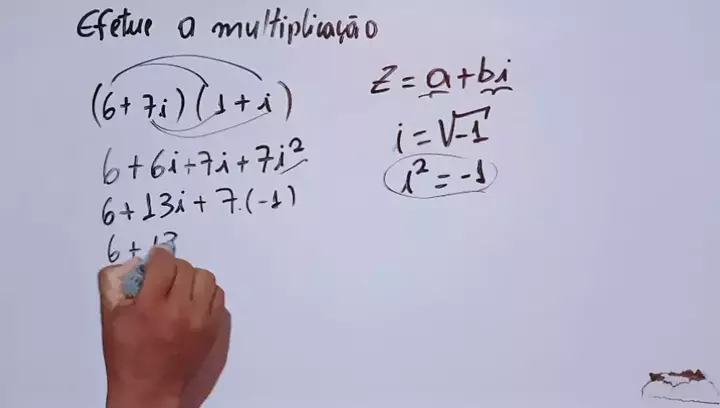 Efetue a multiplicação
(6+7i)(1+i)
6+6i+7i+7i²
6+13i+7.(-1)
6+13
z=a+bi
i=√-1
i²=-1